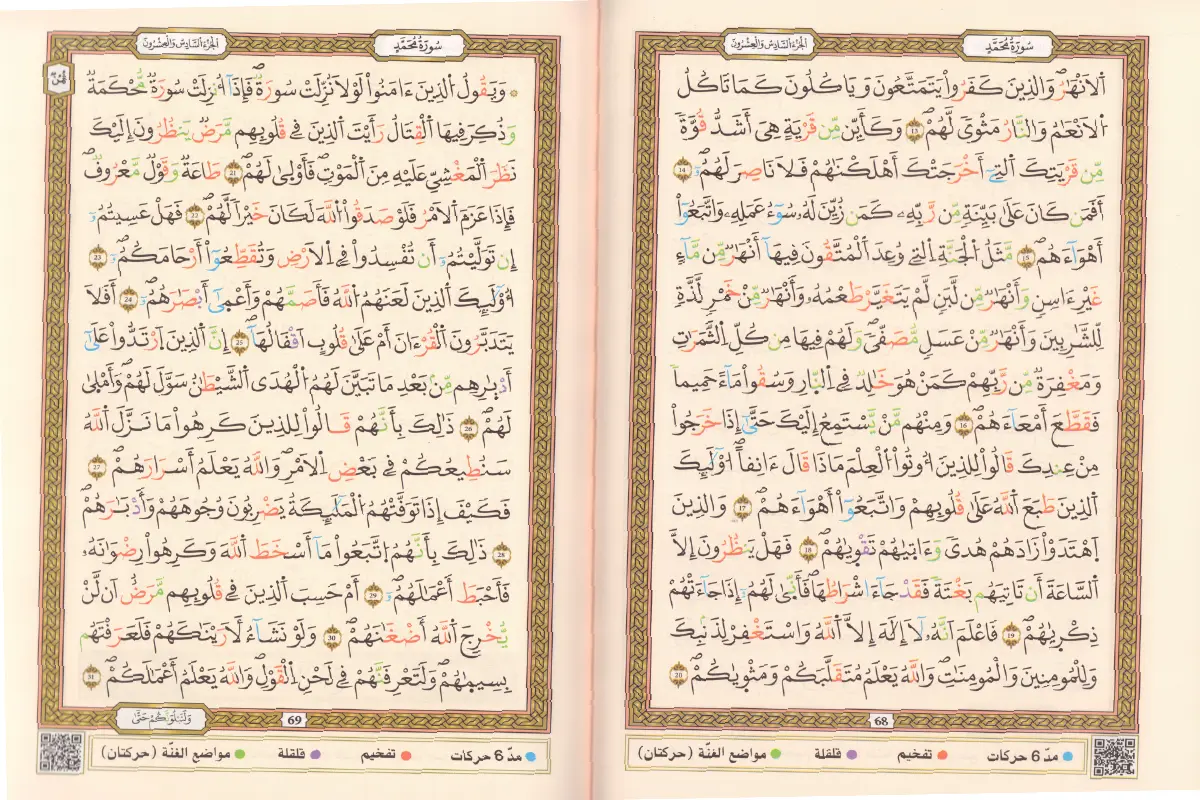 سُورَةُ مُحَمَّدٍ
الجُزْءُ السَّادِسُ وَالعِشْرُونَ
اُ۬لَانْعَٰرُ وَالذِينَ كَفَرُواْ يَتَمَتَّعُونَ وَيَاكُلُونَ كَمَا تَاكُلُ
اُ۬لَانْعَٰمُ وَالنَّارُ مَثْوىٗ لَّهُمْۖ 13 وَكَأَيِّن مِّن قَرْيَةٍ هِيَ أَشَدُّ قُوَّةٗ
مِّن قَرْيَتِكَ اَ۬لتِےٓ أَخْرَجَتْكَ أَهْلَكْنَٰهُمْ فَلَا نَاصِرَ لَهُمُۥٓۖ 14
أَفَمَن كَانَ عَلَىٰ بَيِّنَةٖ مِّن رَّبِّهِۦ كَمَن زُيِّنَ لَهُۥ سُوٓءُ عَمَلِهِۦ وَاتَّبَعُوٓاْ
أَهْوَآءَهُمۖ 15 مَّثَلُ اُ۬لْجَنَّةِ اِ۬لتِے وُعِدَ اَ۬لْمُتَّقُونَ فِيهَآ أَنْهَٰرٞ مِّن مَّآءٍ
غَيْرِ ءَاسِنٖ وَأَنْهَٰرٞ مِّن لَّبَنٖ لَّمْ يَتَغَيَّرْ طَعْمُهُۥ وَأَنْهَٰرٞ مِّنْ خَمْرٖ لَّذَّةٖ
لِّلشَّٰرِبِينَ وَأَنْهَٰرٞ مِّنْ عَسَلٖ مُّصَفّىٗۖ وَلَهُمْ فِيهَا مِن كُلِّ اِ۬لثَّمَرَٰتِ
وَمَغْفِرَةٞ مِّن رَّبِّهِمْ كَمَنْ هُوَ خَٰلِدٞ فِے اِ۬لنَّارِ وَسُقُواْ مَآءً حَمِيماٗ
فَقَطَّعَ أَمْعَآءَهُمْۖ 16 وَمِنْهُم مَّنْ يَّسْتَمِعُ إِلَيْكَ حَتَّىٰٓ إِذَا خَرَجُواْ
مِنْ عِندِكَ قَالُواْ لِلذِينَ أُوتُواْ اُ۬لْعِلْمَ مَاذَا قَالَ ءَانِفاًۖ ا۟وْلَٰٓئِكَ
اَ۬لذِينَ طَبَعَ اَ۬للَّهُ عَلَىٰ قُلُوبِهِمْ وَاتَّبَعُوٓاْ أَهْوَآءَهُمْۖ 17 وَالذِينَ
اَ۪هْتَدَوْاْ زَادَهُمْ هُدىٗ وَءَات۪يٰهُمْ تَقْو۪يٰهُمْۖ 18 فَهَلْ يَنظُرُونَ إِلَّا
اَ۬لسَّاعَةَ أَن تَاتِيَهُم بَغْتَةٗ فَقَدْ جَآءَ اشْرَاطُهَا فَأَنّ۪يٰ لَهُمُۥٓ إِذَا جَآءَتْهُمْ
ذِكْر۪يٰهُمْۖ 19 فَاعْلَمَ اَنَّهُۥ لَآ إِلَٰهَ إِلَّا اَ۬للَّهُ وَاسْتَغْفِرْ لِذَنۢبِكَ
وَلِلْمُومِنِينَ وَالْمُومِنَٰتِۖ وَاللَّهُ يَعْلَمُ مُتَقَلَّبَكُمْ وَمَثْو۪يٰكُمْۖ 20
68
مدّ 6 حركات تفخيم قلقلة مواضع الغنّة (حركتان)
سُورَةُ مُحَمَّدٍ
الجُزْءُ السَّادِسُ وَالعِشْرُونَ
ثُمُن
وَيَقُولُ اُ۬لذِينَ ءَامَنُواْ لَوْلَا نُزِّلَتْ سُورَةٞۖ فَإِذَآ أُنزِلَتْ سُورَةٞ مُّحْكَمَةٞ
وَذُكِرَ فِيهَا اَ۬لْقِتَالُ رَأَيْتَ اَ۬لذِينَ فِے قُلُوبِهِم مَّرَضٞ يَنظُرُونَ إِلَيْكَ
نَظَرَ اَ۬لْمَغْشِيِّ عَلَيْهِ مِنَ اَ۬لْمَوْتِۖ فَأَوْل۪يٰ لَهُمْۖ 21 طَاعَةٞ وَقَوْلٞ مَّعْرُوفٞۖ
فَإِذَا عَزَمَ اَ۬لَامْرُ فَلَوْ صَدَقُواْ اُ۬للَّهَ لَكَانَ خَيْراٗ لَّهُمْۖ 22 فَهَلْ عَسِيتُمُۥٓ
إِن تَوَلَّيْتُمُۥٓ أَن تُفْسِدُواْ فِے اِ۬لَارْضِ وَتُقَطِّعُوٓاْ أَرْحَامَكُمُۥٓۖ 23
أُوْلَٰٓئِكَ اَ۬لذِينَ لَعَنَهُمُ اُ۬للَّهُ فَأَصَمَّهُمْ وَأَعْم۪يٰٓ أَبْصَٰرَهُمُۥٓۖ 24 أَفَلَا
يَتَدَبَّرُونَ اَ۬لْقُرْءَانَ أَمْ عَلَىٰ قُلُوبٍ اَقْفَالُهَآۖ 25 إِنَّ اَ۬لذِينَ اَ۪رْتَدُّواْ عَلَىٰٓ
أَدْبٰ۪رِهِم مِّنۢ بَعْدِ مَا تَبَيَّنَ لَهُمُ اُ۬لْهُدَى اَ۬لشَّيْطَٰنُ سَوَّلَ لَهُمْ وَأَمْل۪يٰ
لَهُمْۖ 26 ذَٰلِكَ بِأَنَّهُمْ قَالُواْ لِلذِينَ كَرِهُواْ مَا نَزَّلَ اَ۬للَّهُ
سَنُطِيعُكُمْ فِے بَعْضِ اِ۬لَامْرِۖ وَاللَّهُ يَعْلَمُ أَسْرَارَهُمْۖ 27
فَكَيْفَ إِذَا تَوَفَّتْهُمُ اُ۬لْمَلَٰٓئِكَةُ يَضْرِبُونَ وُجُوهَهُمْ وَأَدْبَٰرَهُمْۖ
28 ذَٰلِكَ بِأَنَّهُمُ اُ۪تَّبَعُواْ مَآ أَسْخَطَ اَ۬للَّهَ وَكَرِهُواْ رِضْوَٰنَهُۥ
فَأَحْبَطَ أَعْمَٰلَهُمُۥٓۖ 29 أَمْ حَسِبَ اَ۬لذِينَ فِے قُلُوبِهِم مَّرَضٌ اَن لَّنْ
يُّخْرِجَ اَ۬للَّهُ أَضْغَٰنَهُمْۖ 30 وَلَوْ نَشَآءُ لَأَرَيْنَٰكَهُمْ فَلَعَرَفْتَهُم
بِسِيم۪يٰهُمْۖ وَلَتَعْرِفَنَّهُمْ فِے لَحْنِ اِ۬لْقَوْلِۖ وَاللَّهُ يَعْلَمُ أَعْمَٰلَكُمْۖ 31
وَلَنَبْلُوَنَّكُمْ حَتَّىٰ
69
مدّ 6 حركات تفخيم قلقلة مواضع الغنّة (حركتان)